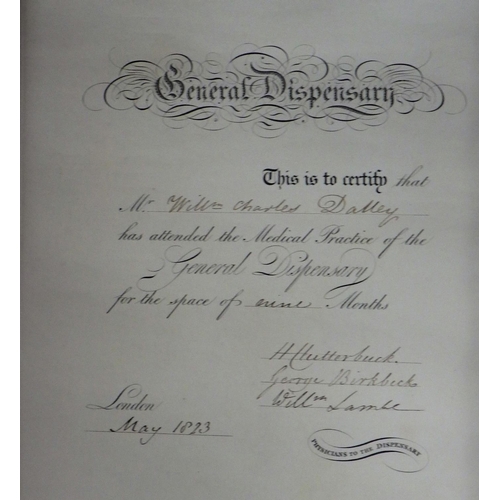 General Dispensary
This is to certify that
Mr Willm Charles Dalley
has attended the Medical Practice of the
General Dispensary
for the space of nine Months
H Clutterbuck.
George Birkbeck
Willm Lambe
London
May 1823
PHYSICIANS TO THE DISPENSARY